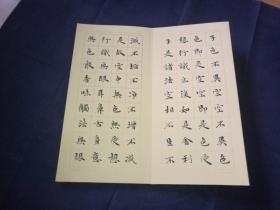 子色不異空空不異色
色即是空空即是色受
想行識亦復如是舍利
子是諸法空相不生不
滅不垢不淨不增不減
是故空中無色無受想
行識無眼耳鼻舌身意
無色聲香味觸法無眼